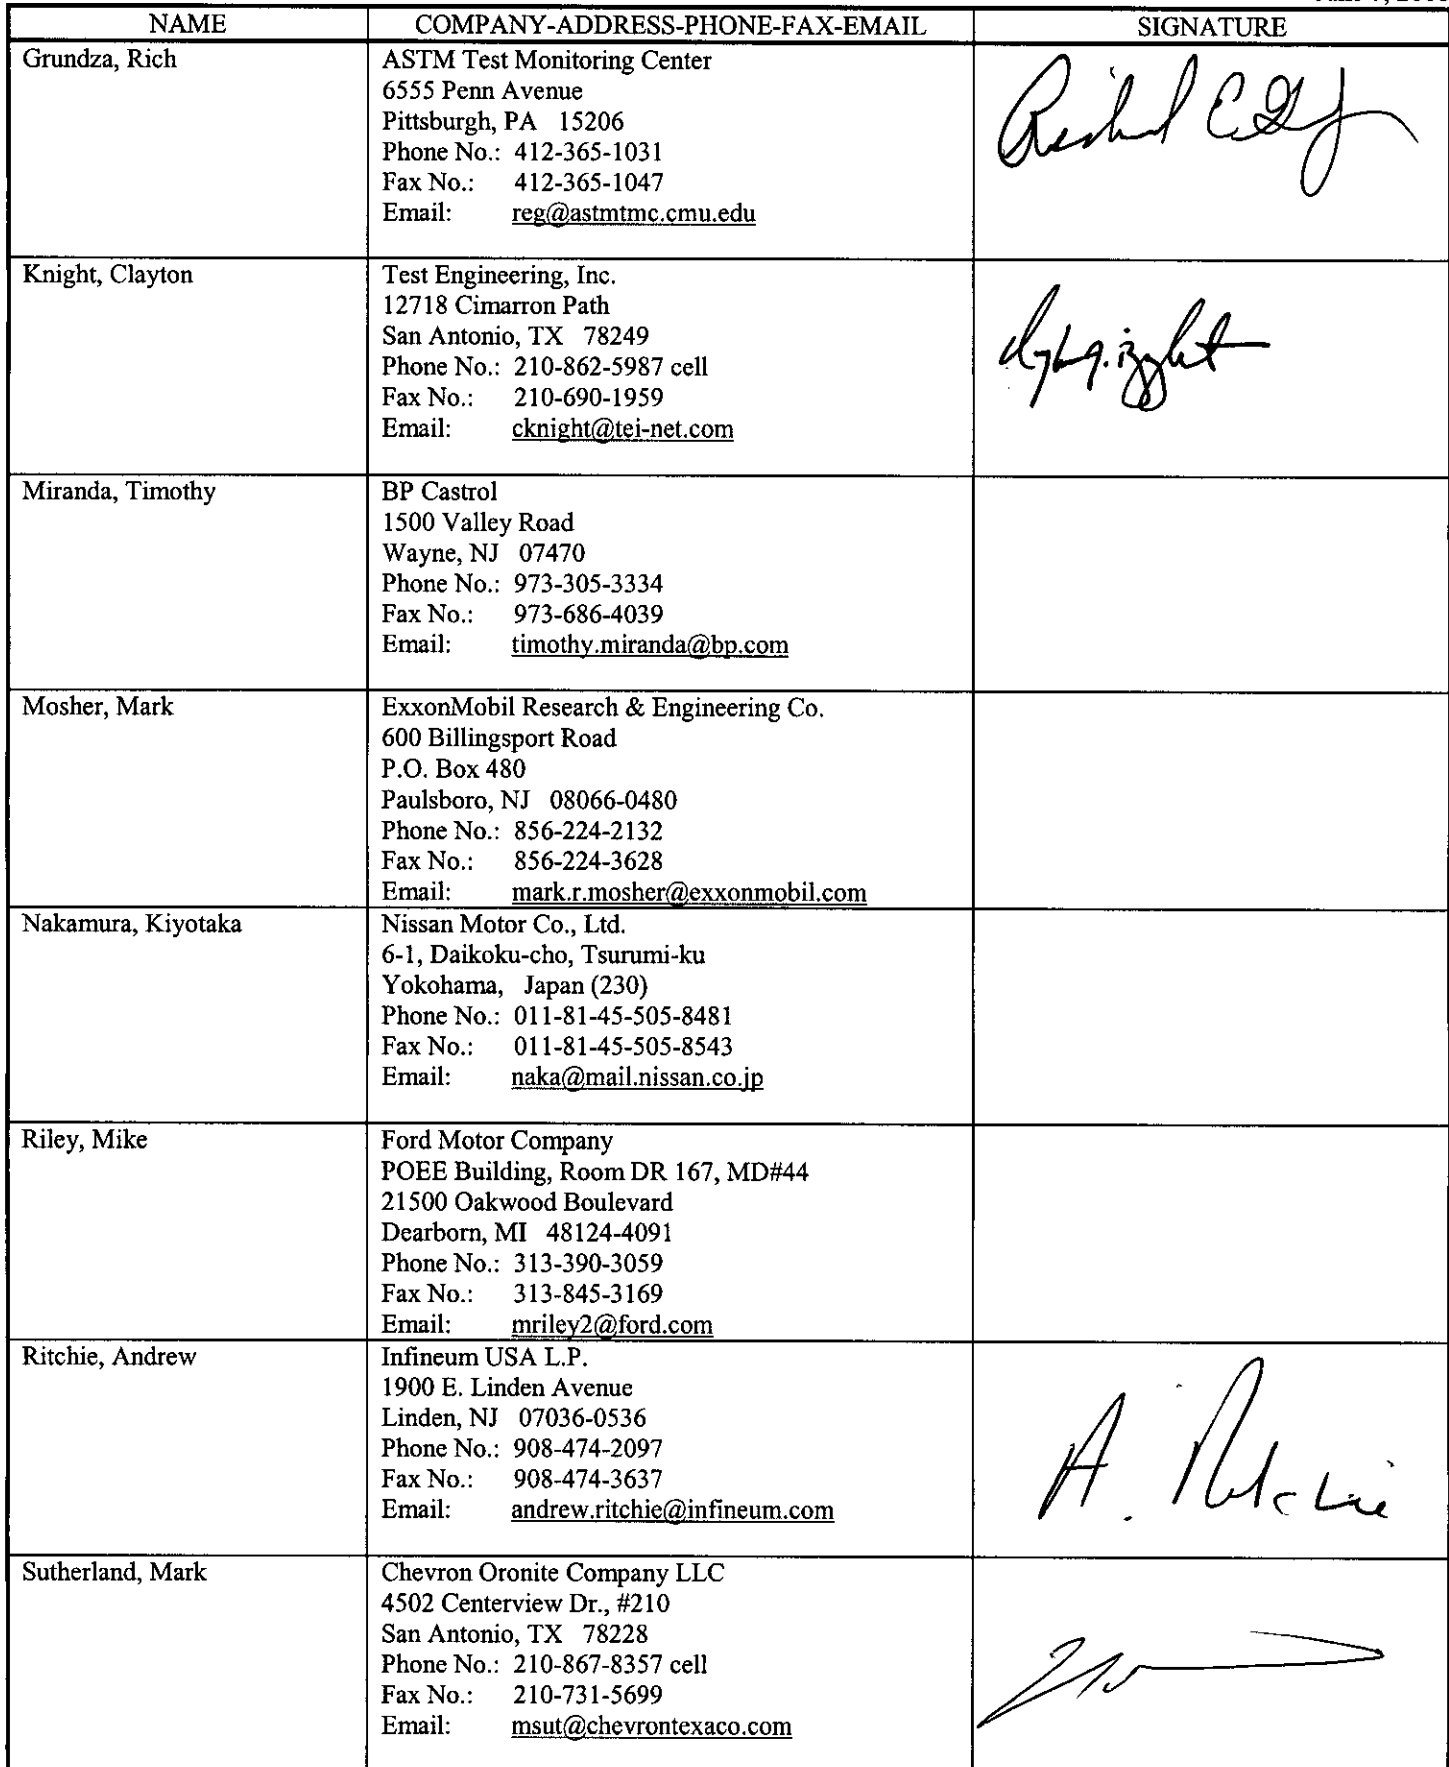 NAME COMPANY-ADDRESS-PHONE-FAX-EMAIL SIGNATURE
Grundza, Rich
ASTM Test Monitoring Center
6555 Penn Avenue
Pittsburgh, PA 15206
Phone No.: 412-365-1031
Fax No.: 412-365-1047
Email: reg@astmtmc.cmu.edu
Knight, Clayton
Test Engineering, Inc.
12718 Cimarron Path
San Antonio, TX 78249
Phone No.: 210-862-5987 cell
Fax No.: 210-690-1959
Email: cknight@tei-net.com
Miranda, Timothy
BP Castrol
1500 Valley Road
Wayne, NJ 07470
Phone No.: 973-305-3334
Fax No.: 973-686-4039
Email: timothy.miranda@bp.com
Mosher, Mark
ExxonMobil Research & Engineering Co.
600 Billingsport Road
P.O. Box 480
Paulsboro, NJ 08066-0480
Phone No.: 856-224-2132
Fax No.: 856-224-3628
Email: mark.r.mosher@exxonmobil.com
Nakamura, Kiyotaka
Nissan Motor Co., Ltd.
6-1, Daikoku-cho, Tsurumi-ku
Yokohama, Japan (230)
Phone No.: 011-81-45-505-8481
Fax No.: 011-81-45-505-8543
Email: naka@mail.nissan.co.jp
Riley, Mike
Ford Motor Company
POEE Building, Room DR 167, MD#44
21500 Oakwood Boulevard
Dearborn, MI 48124-4091
Phone No.: 313-390-3059
Fax No.: 313-845-3169
Email: mriley2@ford.com
Ritchie, Andrew
Infineum USA L.P.
1900 E. Linden Avenue
Linden, NJ 07036-0536
Phone No.: 908-474-2097
Fax No.: 908-474-3637
Email: andrew.ritchie@infineum.com
A. Ritchie
Sutherland, Mark
Chevron Oronite Company LLC
4502 Centerview Dr., #210
San Antonio, TX 78228
Phone No.: 210-867-8357 cell
Fax No.: 210-731-5699
Email: msut@chevrontexaco.com